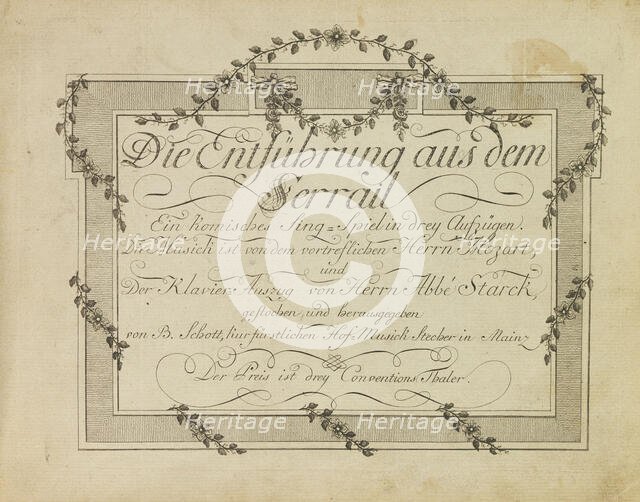 Die Entführung aus dem
Serrail
Ein komisches Sing=Spiel in drey Aufzügen.
Die Musich ist von dem vortreflichen Herrn Mozart,
und
Der Klavier=Auszug von Herrn Abbé Starck,
gestochen, und herausgegeben
von B. Schott, kurfürstlichen Hof=Musick Stecher in Mainz
Der Preis ist drey Conventions Thaler.
Heritage
Heritage
Heritage
Heritage
Heritage
Heritage
Heritage
Heritage
Heritage